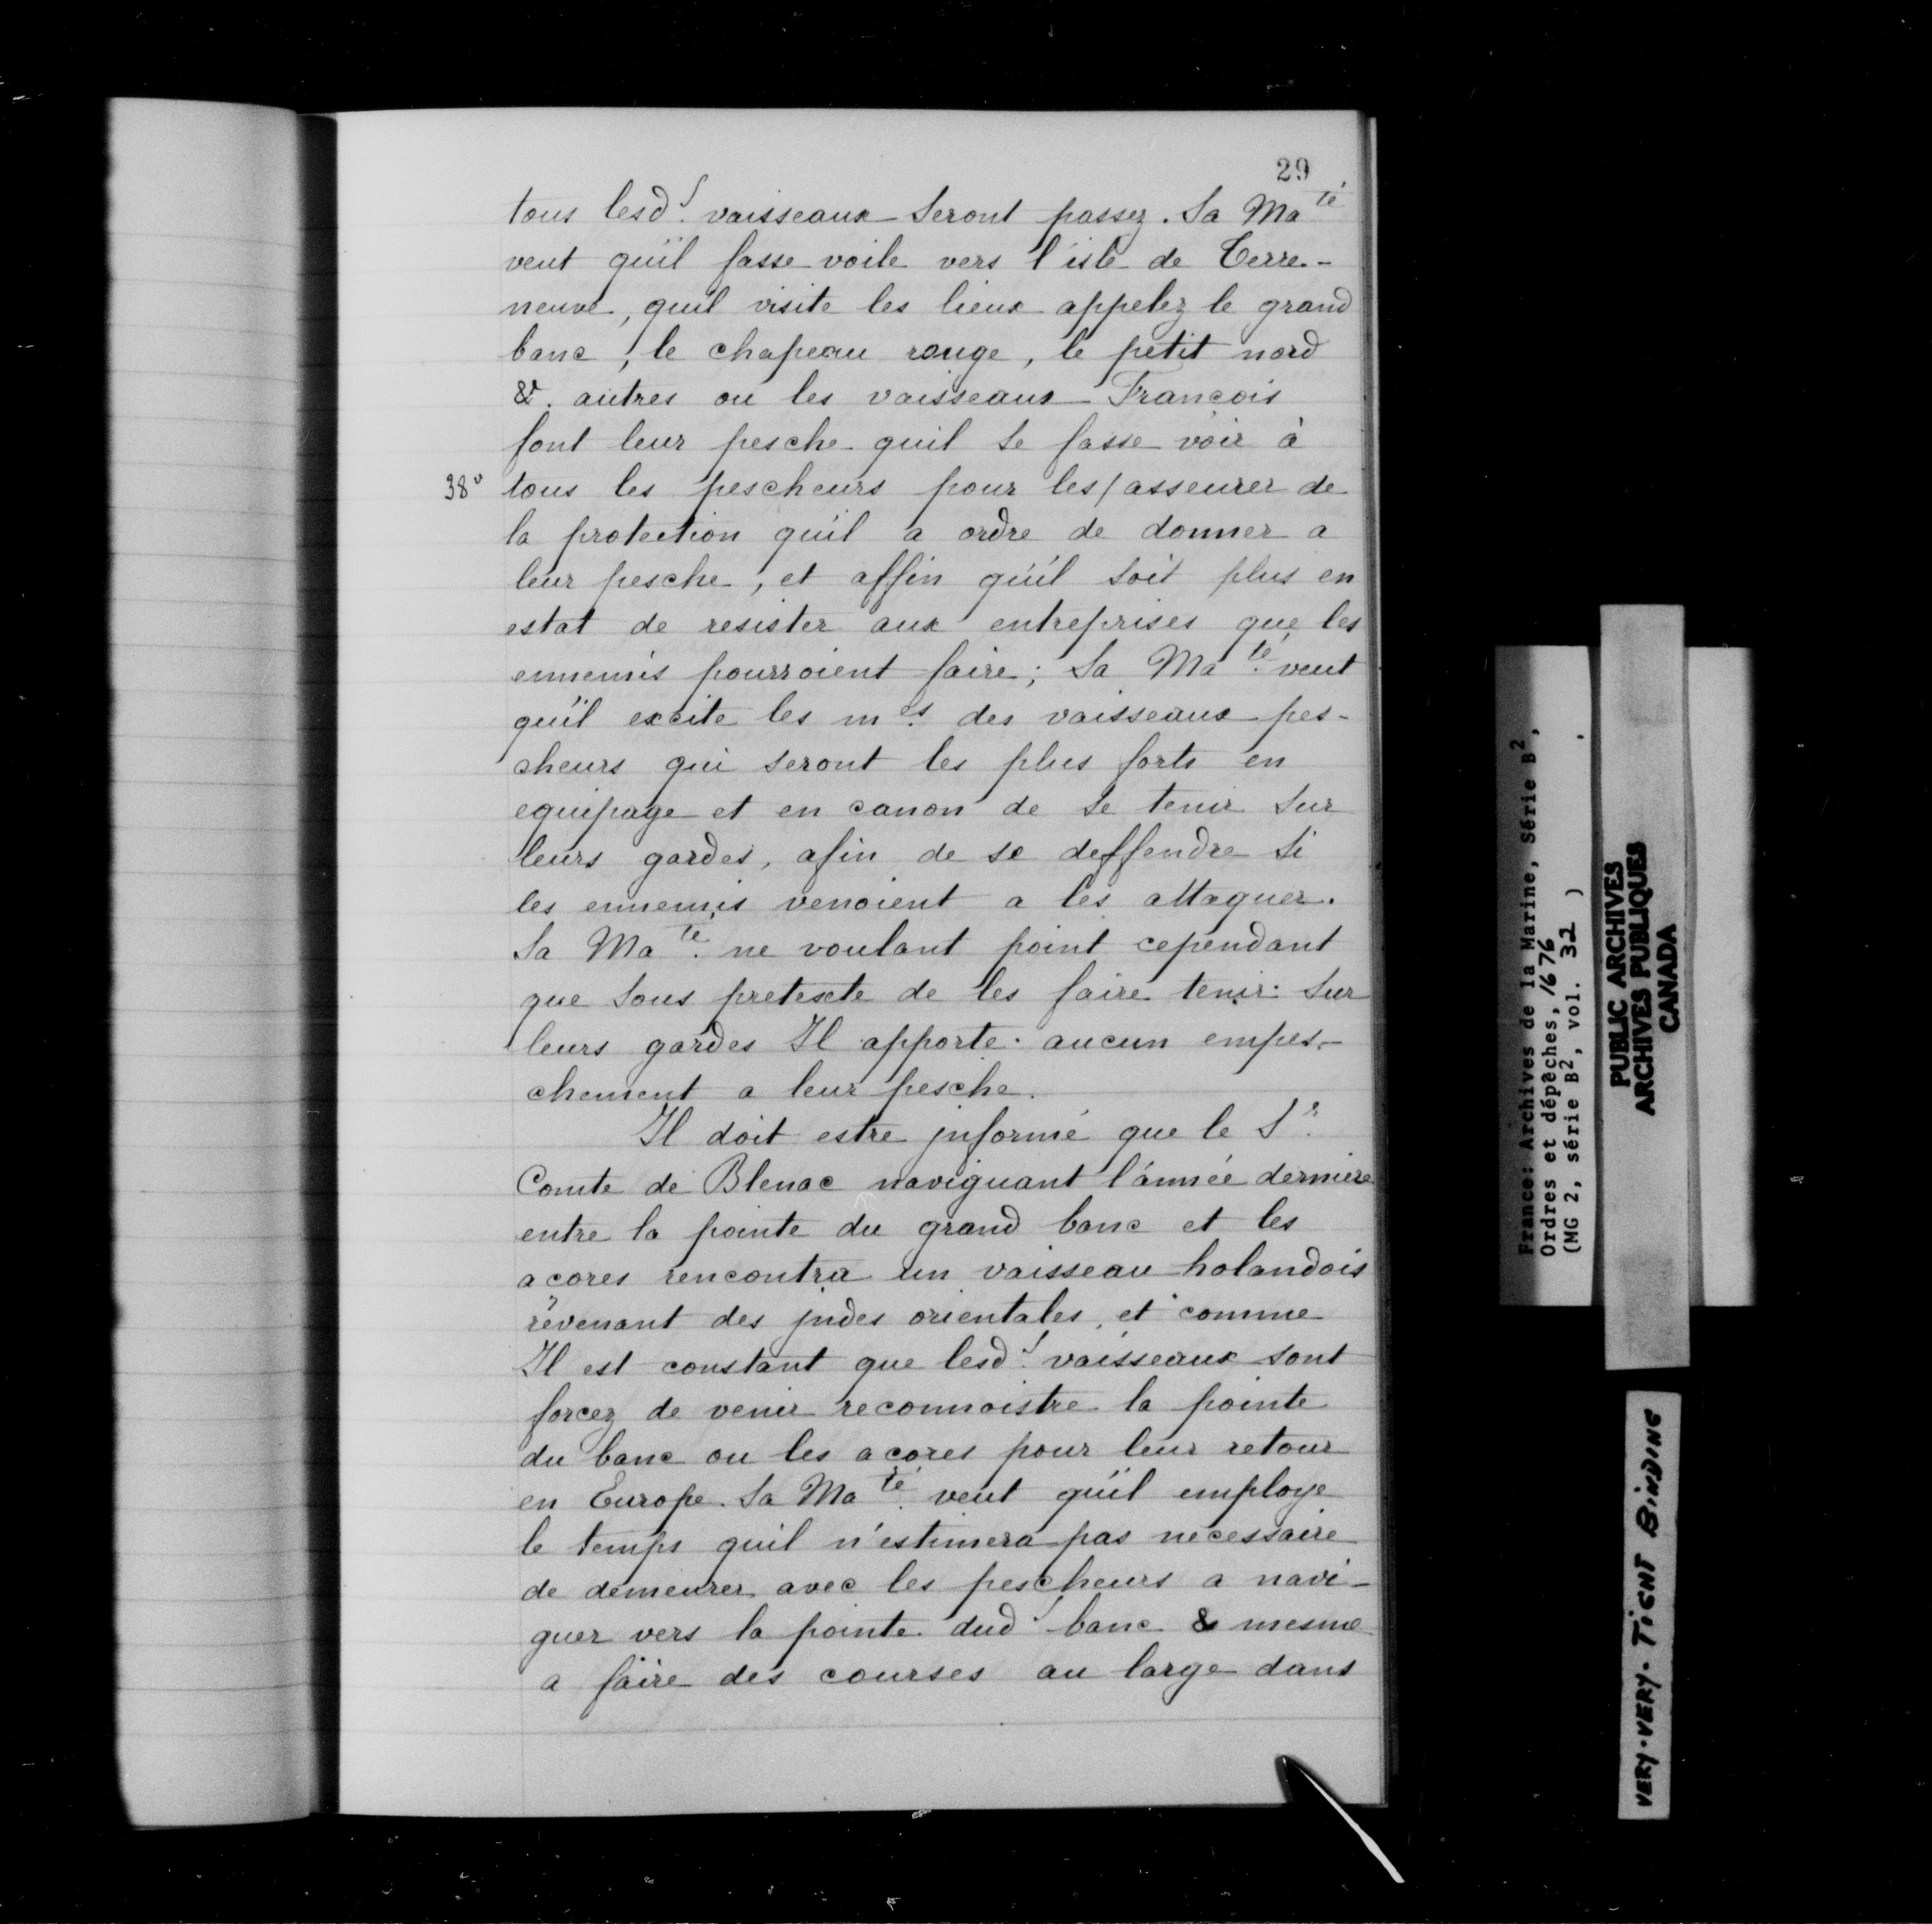 29
tous lesd.s vaisseaux seront passez. Sa Ma.té
veut qu'il fasse voile vers l'isle de Terre-
neuve, qu'il visite les lieux appelez le grand
banc, le chapeau rouge, le petit nord
&. autres ou les vaisseaux François
font leur pesche qu'il se fasse voir à
38v tous les pescheurs pour les/asseurer de
la protection qu'il a ordre de donner a
leur pesche, et affin qu'il soit plus en
estat de resister aux entreprises que les
ennemis pourroient faire; Sa Ma.té veut
qu'il excite les m.es des vaisseaux pes-
cheurs qui seront les plus forts en
equipage et en canon de se tenir sur
leurs gardes, afin de se deffendre si
les ennemis venoient a les attaquer.
Sa Ma.té ne voulant point cependant
que sous pretexte de les faire tenir sur
leurs gardes Il apporte aucun empes-
chement a leur pesche.
Il doit estre jnformé que le S.r
Comte de Blenac naviguant l'année derniere
entre la pointe du grand banc et les
açores rencontra un vaisseau holandois
revenant des jndes orientales, et comme
Il est constant que lesd.s vaisseaux sont
forcez de venir reconnoistre la pointe
du banc ou les açores pour leur retour
en Europe. Sa Ma.té veut qu'il employe
le temps qu'il n'estimera pas necessaire
de demeurer avec les pescheurs a navi-
guer vers la pointe dud.s banc & mesme
a faire des courses au large dans
France: Archives de la Marine, Série B2,
Ordres et dépêches, 1676
(MG 2, série B2, vol. 32 )
PUBLIC ARCHIVES
ARCHIVES PUBLIQUES
CANADA
VERY-VERY-TIGHT BINDING